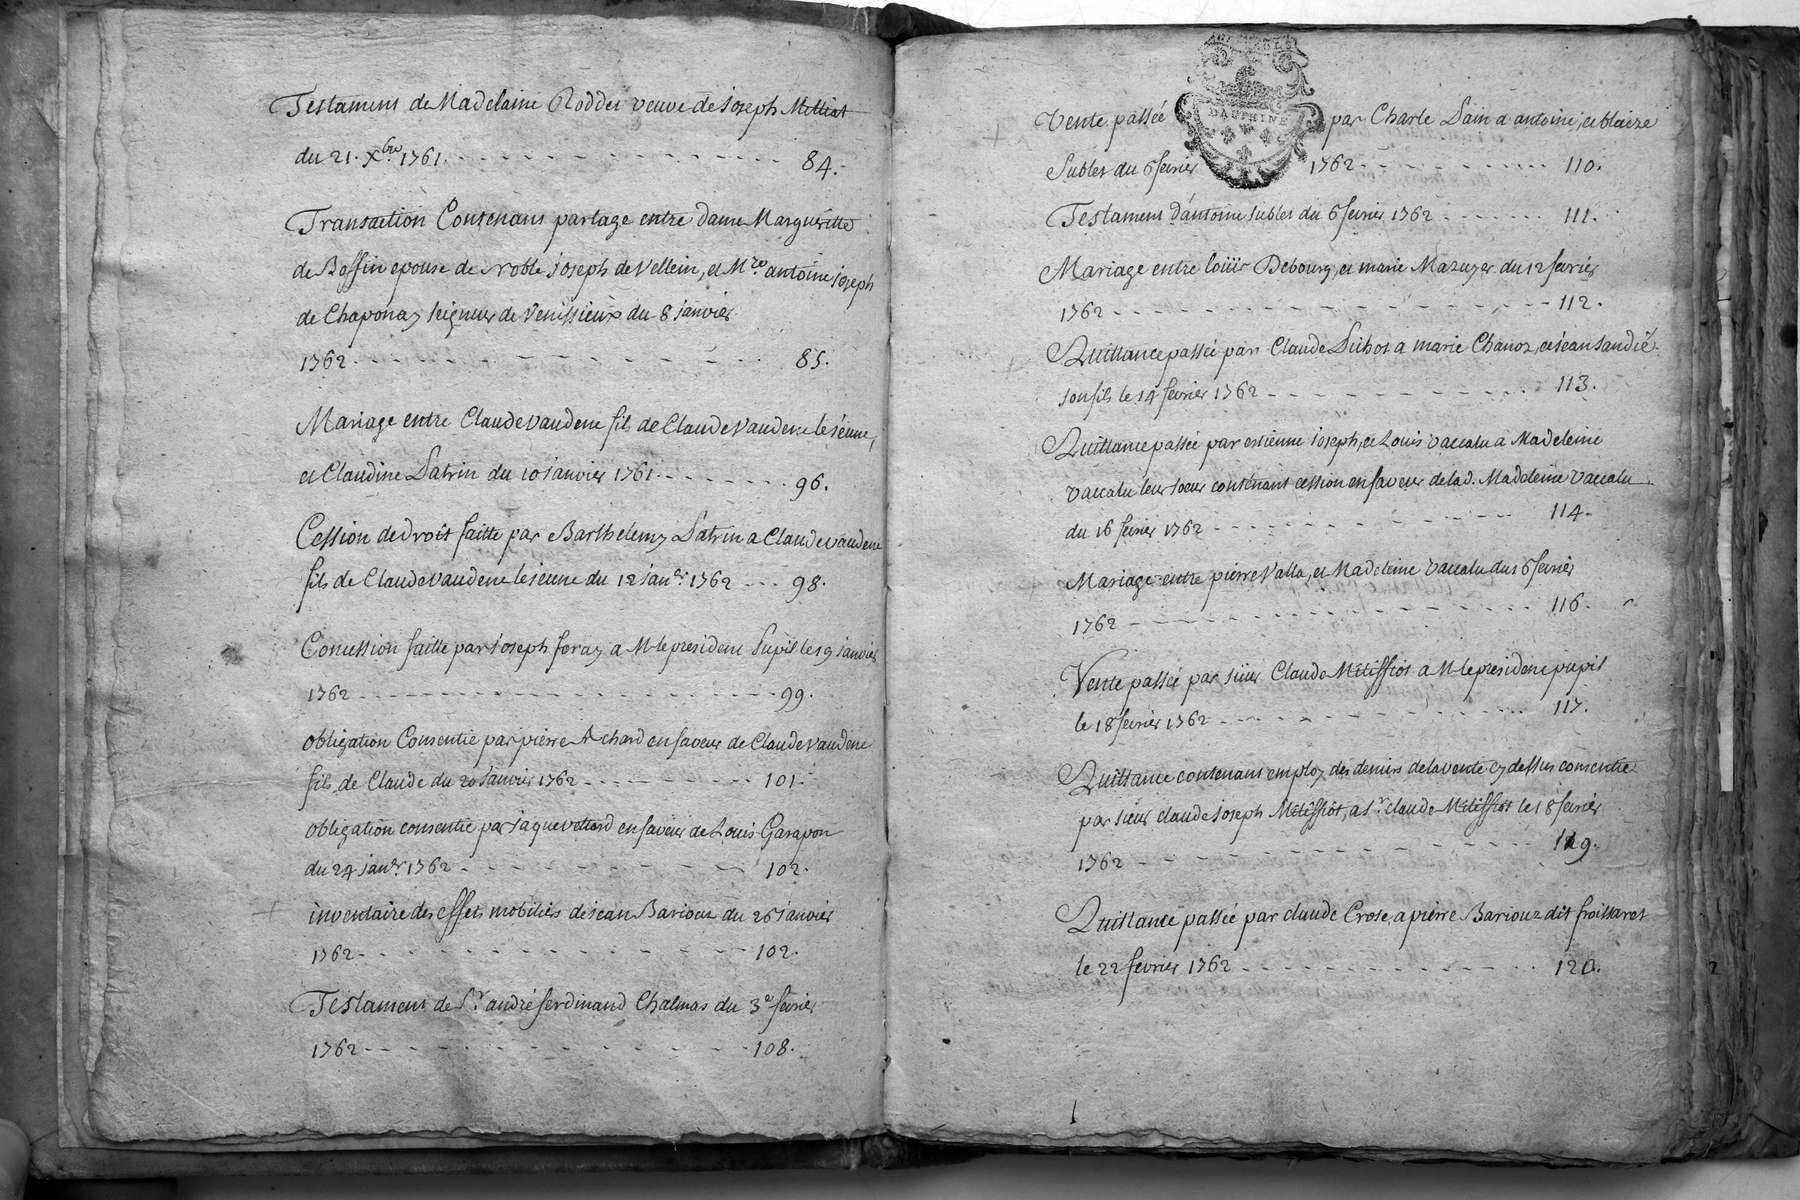 Testament de Madelaine Roddet veuve de Joseph Milliat
du 21. Xbre 1761. 84.
Transaction Contenant partage entre dame Margueritte
de Boffin epouse de Noble Joseph de Vellein, et Mre antoine joseph
de Chaponay seigneur de Venissieux du 8 janvier
1762 85.
Mariage entre Claude vaudene fils de Claude vaudene le jeune,
et Claudine Patrin du 10 janvier 1761. 96.
Cession de Droit faitte par Barthelemy Patrin a Claude vaudene
fils de Claude vaudene le jeune du 12 janer 1762 98.
Concession faitte par joseph foray a Mr le president Pupil le 19 janvier
1762 99.
obligation Consentie par pierre Achard en faveur de Claude vaudene
fils de Claude du 20 janvier 1762 101.
obligation consentie par jaque vettard en faveur de Louis Garapon
du 24 janer 1762 102.
inventaire des effets mobiliés de jean Bariouz du 26 janvier
1762 102.
Testament de Sr andré ferdinand Chalmas du 3e fevrier
1762 108.
DAUPHINE
Vente passée par Charle Pain a antoine, et blaize
Sublet du 6 fevrier 1762 110.
Testament d'antoine sublet du 6 fevrier 1762 111.
Mariage entre loüis Debourg, et marie Mazuyer du 12 fevrier
1762 112.
Quittance passée par Claude Pichot a marie Chanoz, et jean
son fils le 14 fevrier 1762 113.
Quittance passée par estienne joseph, et Louis vaccalu a Madeleine
vaccalu leur soeur contenant cession en faveur de lad. Madeleine vaccalu
du 16 fevrier 1762 114.
Mariage entre pierre Valla, et Madeleine vaccalu du 16 fevrier
1762 116.
Vente passée par sieur Claude Métissiot a Mr le president pupil
le 18 fevrier 1762 117.
Quittance contenant employ des deniers de la vente cy dessus consentie
par sieur claude joseph Métissiot, a Sr claude Métissiot le 18 fevrier
1762 119.
Quittance passée par claude Crose, a pierre Bariouz dit froissaret
le 22 fevrier 1762 120.